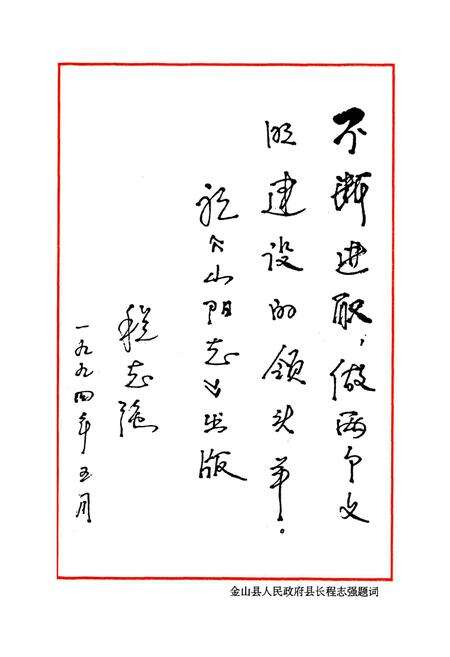 不断进取，做两个文
明建设的领头羊。
祝《山阳志》出版
程志强
一九九四年五月
金山县人民政府县长程志强题词